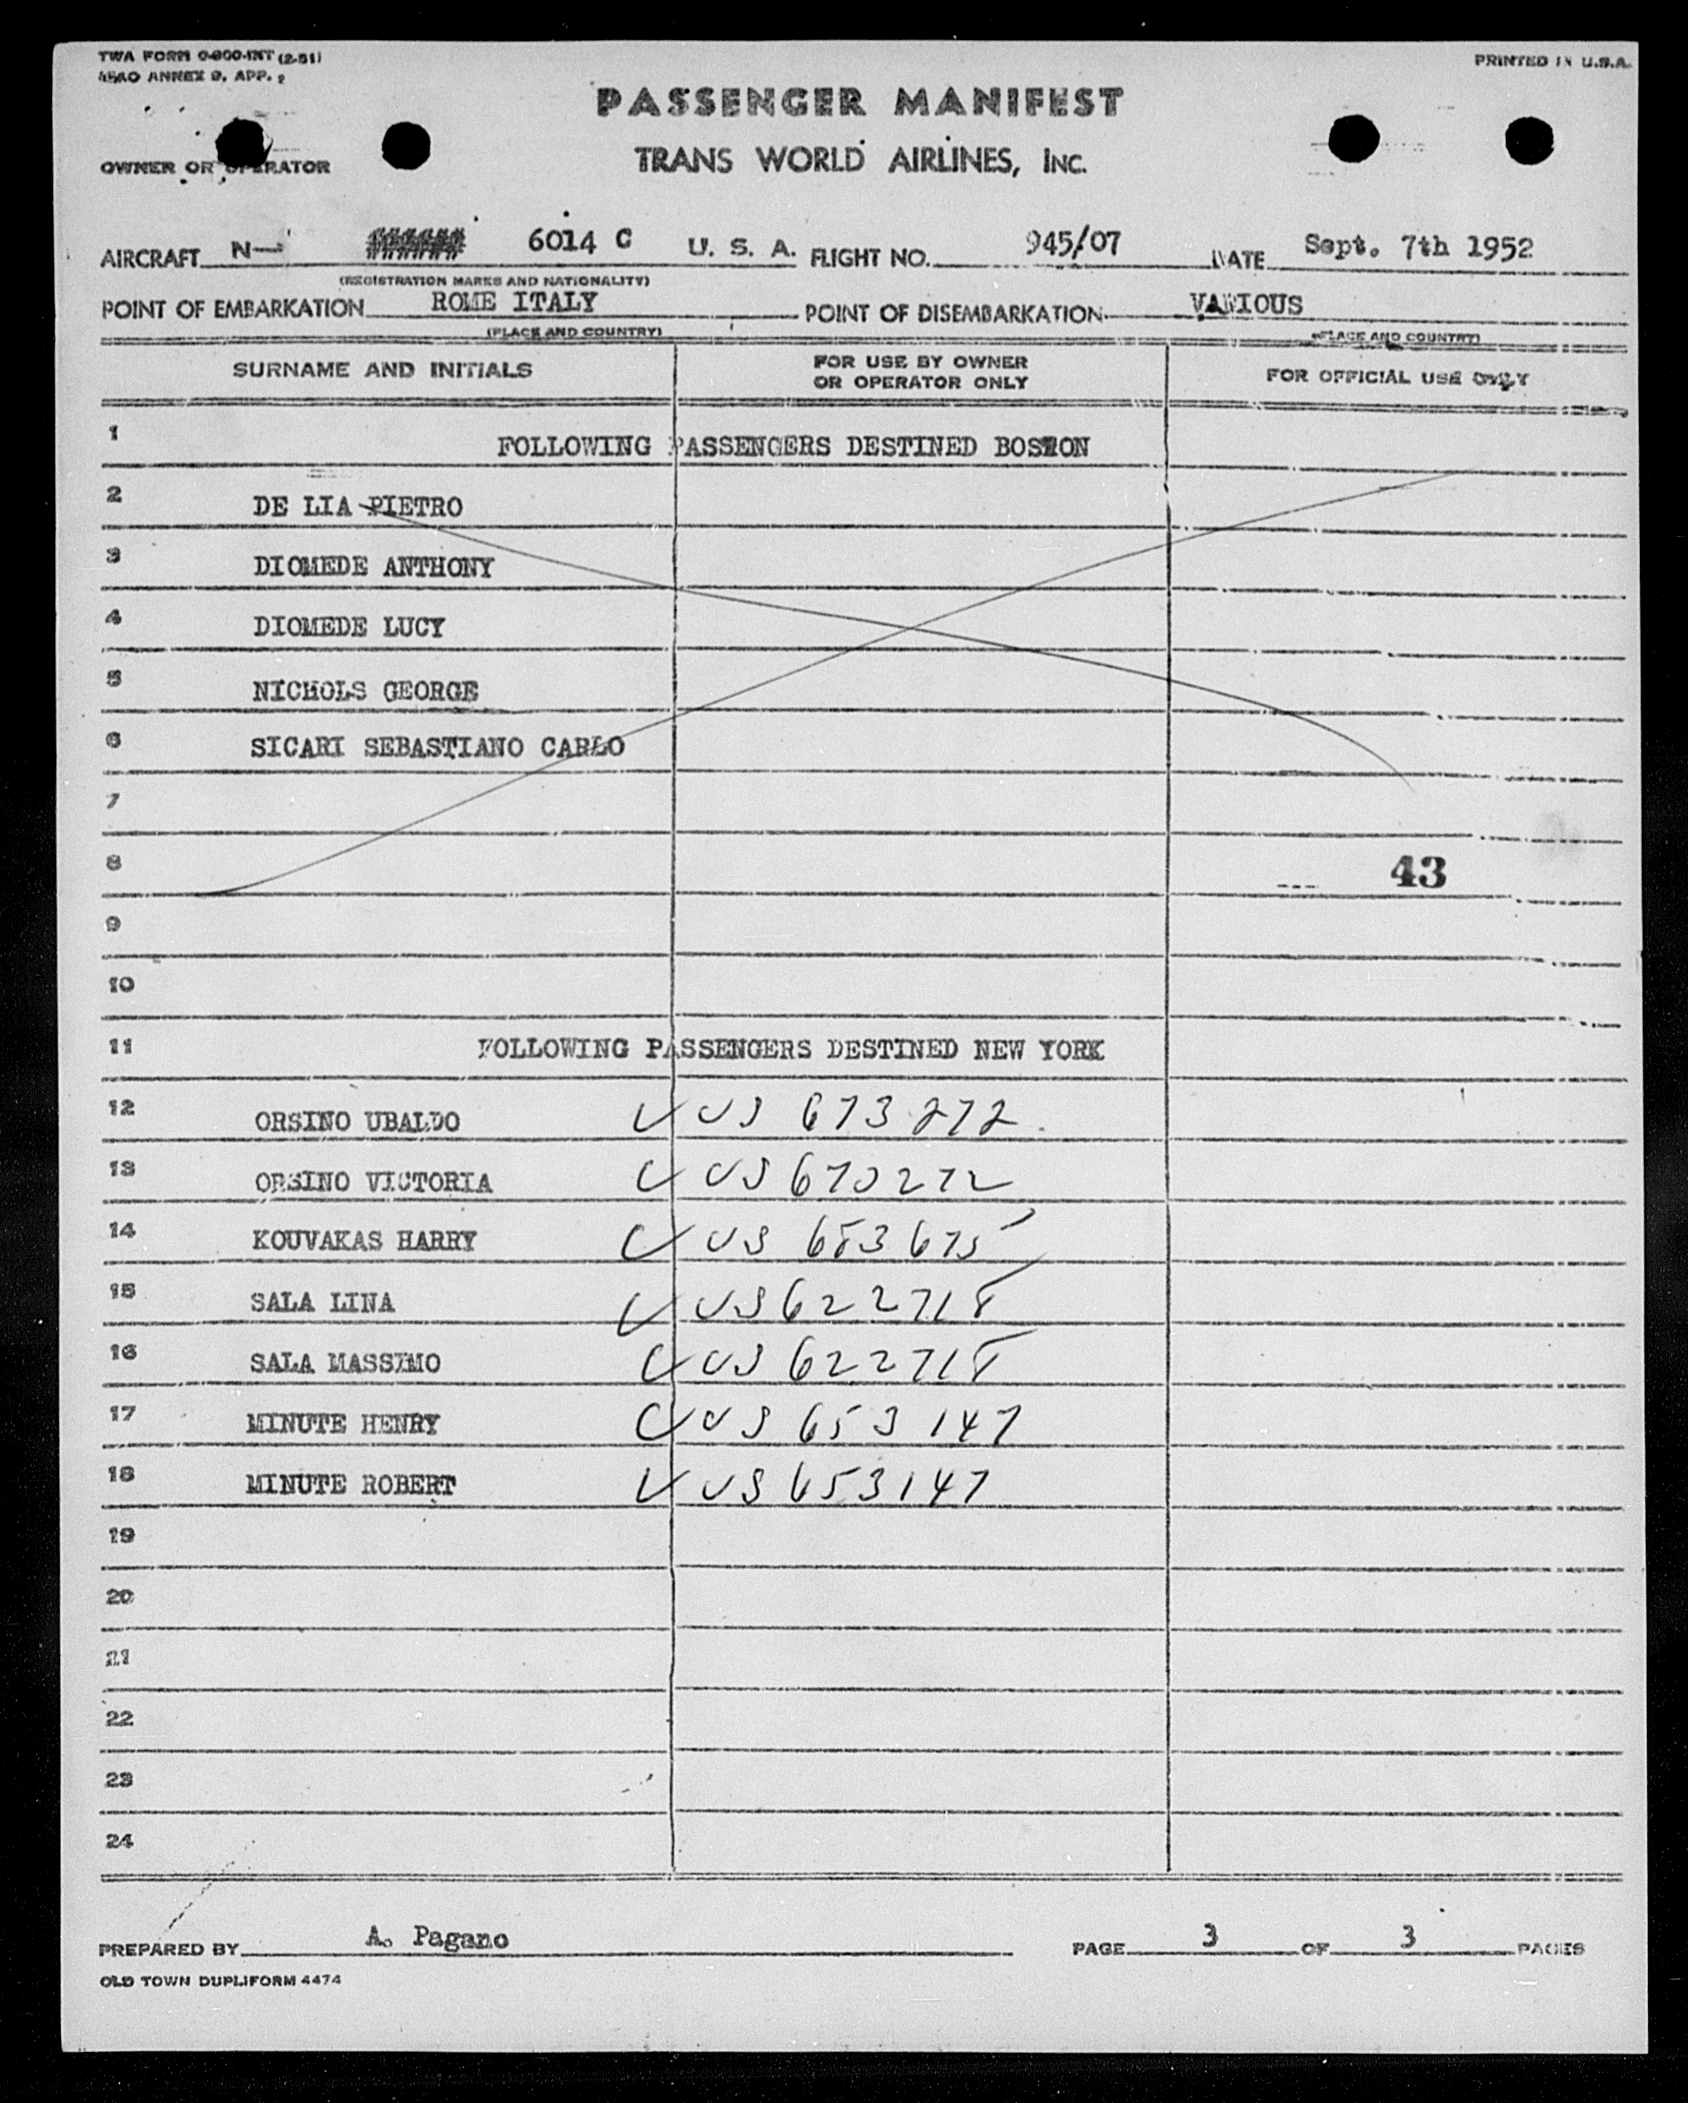 TWA FORM 0-800-INT (2-51)
ICAO ANNEX 9, APP. 2
PRINTED IN U.S.A.
PASSENGER MANIFEST
OWNER OR OPERATOR TRANS WORLD AIRLINES, INC.
AIRCRAFT N- 6014 C U. S. A. FLIGHT NO. 945/07 DATE Sept. 7th 1952
(REGISTRATION MARKS AND NATIONALITY)
POINT OF EMBARKATION ROME ITALY POINT OF DISEMBARKATION VARIOUS
(PLACE AND COUNTRY) (PLACE AND COUNTRY)
SURNAME AND INITIALS FOR USE BY OWNER OR OPERATOR ONLY FOR OFFICIAL USE ONLY
1 FOLLOWING PASSENGERS DESTINED BOSTON
2 DE LIA PIETRO
3 DIOMEDE ANTHONY
4 DIOMEDE LUCY
5 NICHOLS GEORGE
6 SICARI SEBASTIANO CARLO
7
8 43
9
10
11 FOLLOWING PASSENGERS DESTINED NEW YORK
12 ORSINO UBALDO US 673272
13 ORSINO VICTORIA US 673272
14 KOUVAKAS HARRY US 683675
15 SALA LINA US 622718
16 SALA MASSIMO US 622718
17 MINUTE HENRY US 653147
18 MINUTE ROBERT US 653147
19
20
21
22
23
24
PREPARED BY A. Pagano PAGE 3 OF 3 PAGES
OLD TOWN DUPLIFORM 4474